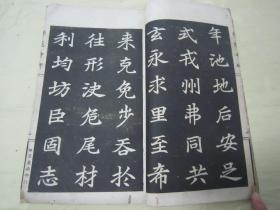 年池地后安足
式戎州弗同共
玄永求里至希
来克免步吞於
往形決危尾材
利均坊臣固志